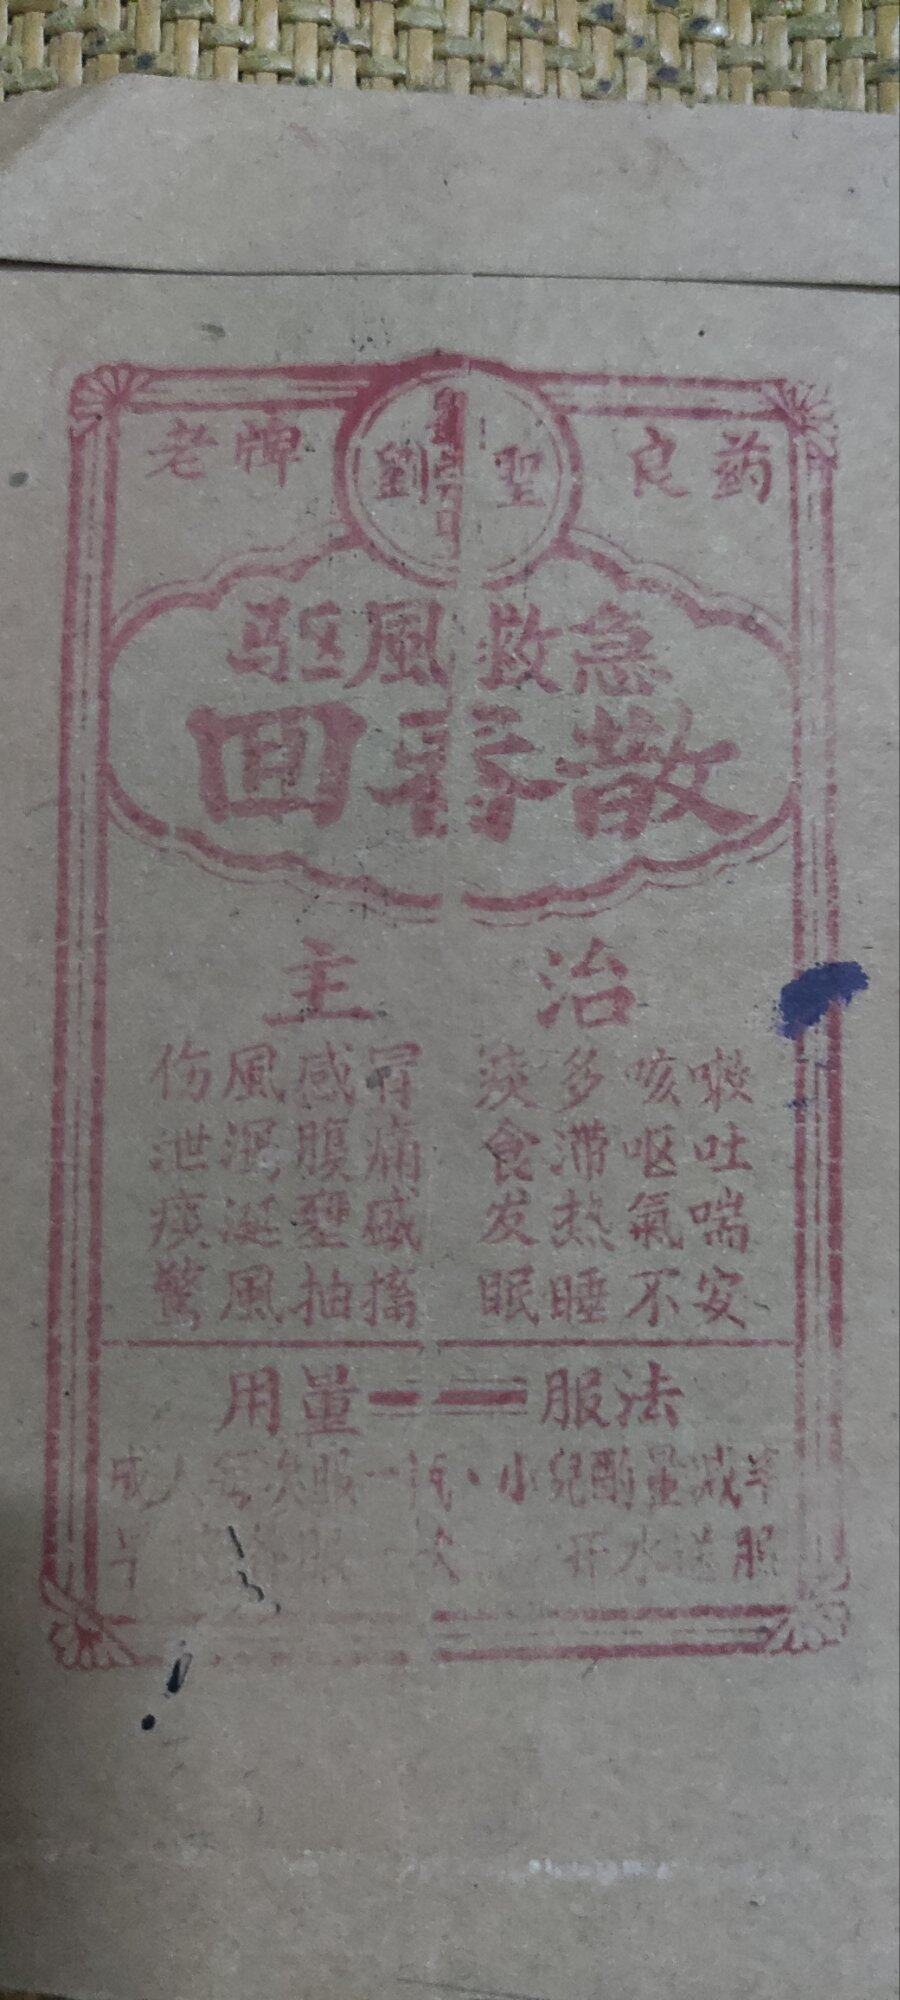 老牌 劉 聖 良药
驱風救急
回春散
主 治
伤風感冒 痰多咳嗽
泄泻腹痛 食滞呕吐
痰涎壅盛 发热氣喘
驚風抽搐 眠睡不安
用量 服法
成人每次服一 小兒酌量减半
服 次 开水送服